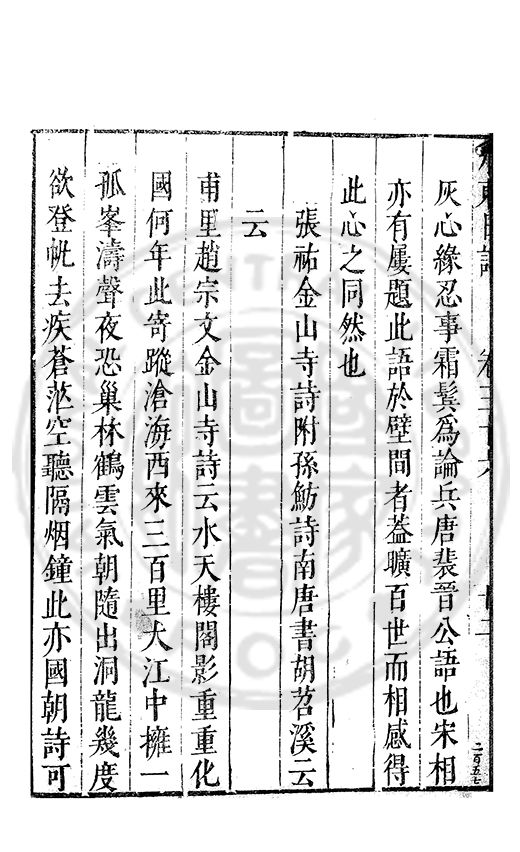 灰心緣忍事霜鬂爲論兵唐裴晉公語也宋相
亦有屢題此語於壁間者葢曠百世而相感得
此心之同然也
張祐金山寺詩附孫魴詩南唐書胡苕溪云
云
甫里趙宗文金山寺詩云水天樓閣影重重化
國何年此寄蹤滄海西來三百里大江中擁一
孤峯濤聲夜恐巢林鶴雲氣朝隨出洞龍幾度
欲登帆去疾蒼茫空聽隔烟鐘此亦國朝詩可
二百五七